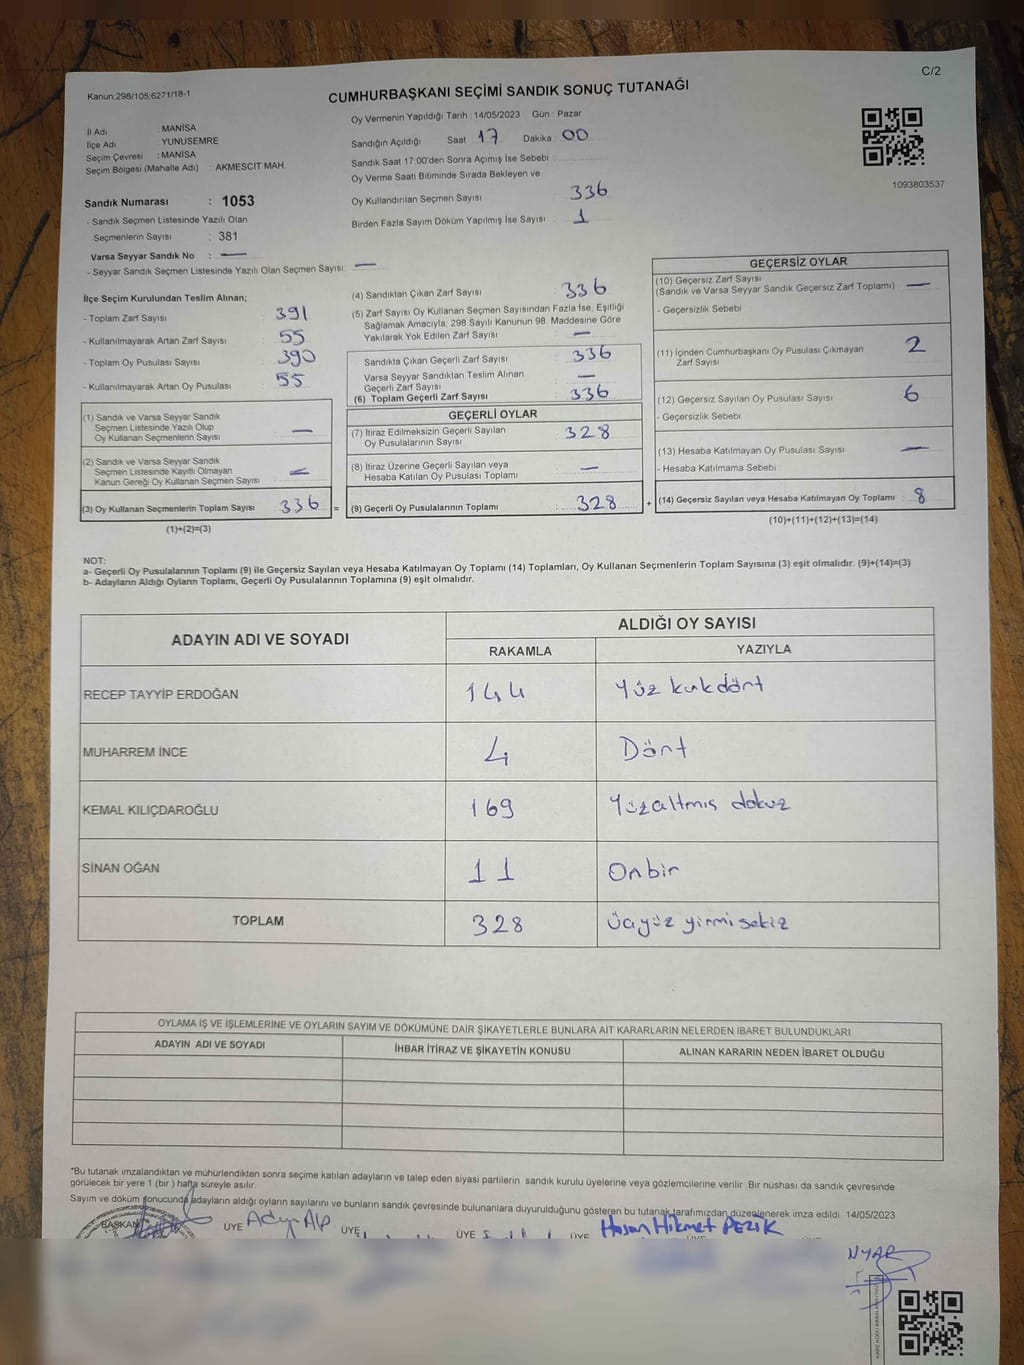 C/2
Kanun;298/105;6271/18-1
CUMHURBAŞKANI SEÇİMİ SANDIK SONUÇ TUTANAĞI
İl Adı MANİSA
İlçe Adı YUNUSEMRE
Seçim Çevresi : MANİSA
Seçim Bölgesi (Mahalle Adı) : AKMESCİT MAH
Oy Vermenin Yapıldığı Tarih : 14/05/2023 Gün : Pazar
Sandığın Açıldığı Saat 17 Dakika 00
Sandık Saat 17:00'den Sonra Açımış İse Sebebi
Oy Verme Saati Bitiminde Sırada Bekleyen ve
Oy Kullandırılan Seçmen Sayısı 336
Birden Fazla Sayım Döküm Yapılmış İse Sayısı 1
1093803537
Sandık Numarası : 1053
- Sandık Seçmen Listesinde Yazılı Olan
Seçmenlerin Sayısı : 381
Varsa Seyyar Sandık No : —
- Seyyar Sandık Seçmen Listesinde Yazılı Olan Seçmen Sayısı : —
İlçe Seçim Kurulundan Teslim Alınan;
- Toplam Zarf Sayısı : 391
- Kullanılmayarak Artan Zarf Sayısı : 55
- Toplam Oy Pusulası Sayısı : 390
- Kullanılmayarak Artan Oy Pusulası : 55
(1) Sandık ve Varsa Seyyar Sandık
Seçmen Listesinde Yazılı Olup
Oy Kullanan Seçmenlerin Sayısı : —
(2) Sandık ve Varsa Seyyar Sandık
Seçmen Listesinde Kayıtlı Olmayan
Kanun Gereği Oy Kullanan Seçmen Sayısı : —
(3) Oy Kullanan Seçmenlerin Toplam Sayısı : 336 =
(1)+(2)=(3)
(4) Sandıktan Çıkan Zarf Sayısı : 336
(5) Zarf Sayısı Oy Kullanan Seçmen Sayısından Fazla İse, Eşitliği
Sağlamak Amacıyla, 298 Sayılı Kanunun 98. Maddesine Göre
Yakılarak Yok Edilen Zarf Sayısı : —
Sandıkta Çıkan Geçerli Zarf Sayısı : 336
Varsa Seyyar Sandıktan Teslim Alınan
Geçerli Zarf Sayısı : —
(6) Toplam Geçerli Zarf Sayısı : 336
GEÇERLİ OYLAR
(7) İtiraz Edilmeksizin Geçerli Sayılan
Oy Pusulalarının Sayısı : 328
(8) İtiraz Üzerine Geçerli Sayılan veya
Hesaba Katılan Oy Pusulası Toplamı : —
(9) Geçerli Oy Pusulalarının Toplamı : 328 +
GEÇERSİZ OYLAR
(10) Geçersiz Zarf Sayısı
(Sandık ve Varsa Seyyar Sandık Geçersiz Zarf Toplamı) : —
- Geçersizlik Sebebi
(11) İçinden Cumhurbaşkanı Oy Pusulası Çıkmayan
Zarf Sayısı 2
(12) Geçersiz Sayılan Oy Pusulası Sayısı : 6
- Geçersizlik Sebebi
(13) Hesaba Katılmayan Oy Pusulası Sayısı : —
- Hesaba Katılmama Sebebi
(14) Geçersiz Sayılan veya Hesaba Katılmayan Oy Toplamı : 8
(10)+(11)+(12)+(13)=(14)
NOT:
a- Geçerli Oy Pusulalarının Toplamı (9) ile Geçersiz Sayılan veya Hesaba Katılmayan Oy Toplamı (14) Toplamları, Oy Kullanan Seçmenlerin Toplam Sayısına (3) eşit olmalıdır. (9)+(14)=(3)
b- Adayların Aldığı Oyların Toplamı, Geçerli Oy Pusulalarının Toplamına (9) eşit olmalıdır.
ADAYIN ADI VE SOYADI ALDIĞI OY SAYISI
RAKAMLA YAZIYLA
RECEP TAYYİP ERDOĞAN 144 Yüz kırkdört
MUHARREM İNCE 4 Dört
KEMAL KILIÇDAROĞLU 169 Yüzaltmış dokuz
SİNAN OĞAN 11 Onbir
TOPLAM 328 üçyüz yirmisekiz
OYLAMA İŞ VE İŞLEMLERİNE VE OYLARIN SAYIM VE DÖKÜMÜNE DAİR ŞİKAYETLERLE BUNLARA AİT KARARLARIN NELERDEN İBARET BULUNDUKLARI
ADAYIN ADI VE SOYADI İHBAR İTİRAZ VE ŞİKAYETİN KONUSU ALINAN KARARIN NEDEN İBARET OLDUĞU
*Bu tutanak imzalandıktan ve mühürlendikten sonra seçime katılan adayların ve talep eden siyasi partilerin sandık kurulu üyelerine veya gözlemcilerine verilir. Bir nüshası da sandık çevresinde
görülecek bir yere 1 (bir) hafta süreyle asılır.
Sayım ve döküm sonucunda adayların aldığı oyların sayılarını ve bunların sandık çevresinde bulunanlara duyurulduğunu gösteren bu tutanak tarafımızdan düzenlenerek imza edildi. 14/05/2023
BAŞKAN ÜYE Alp ÜYE ÜYE ÜYE Hasan Hikmet PEZİK